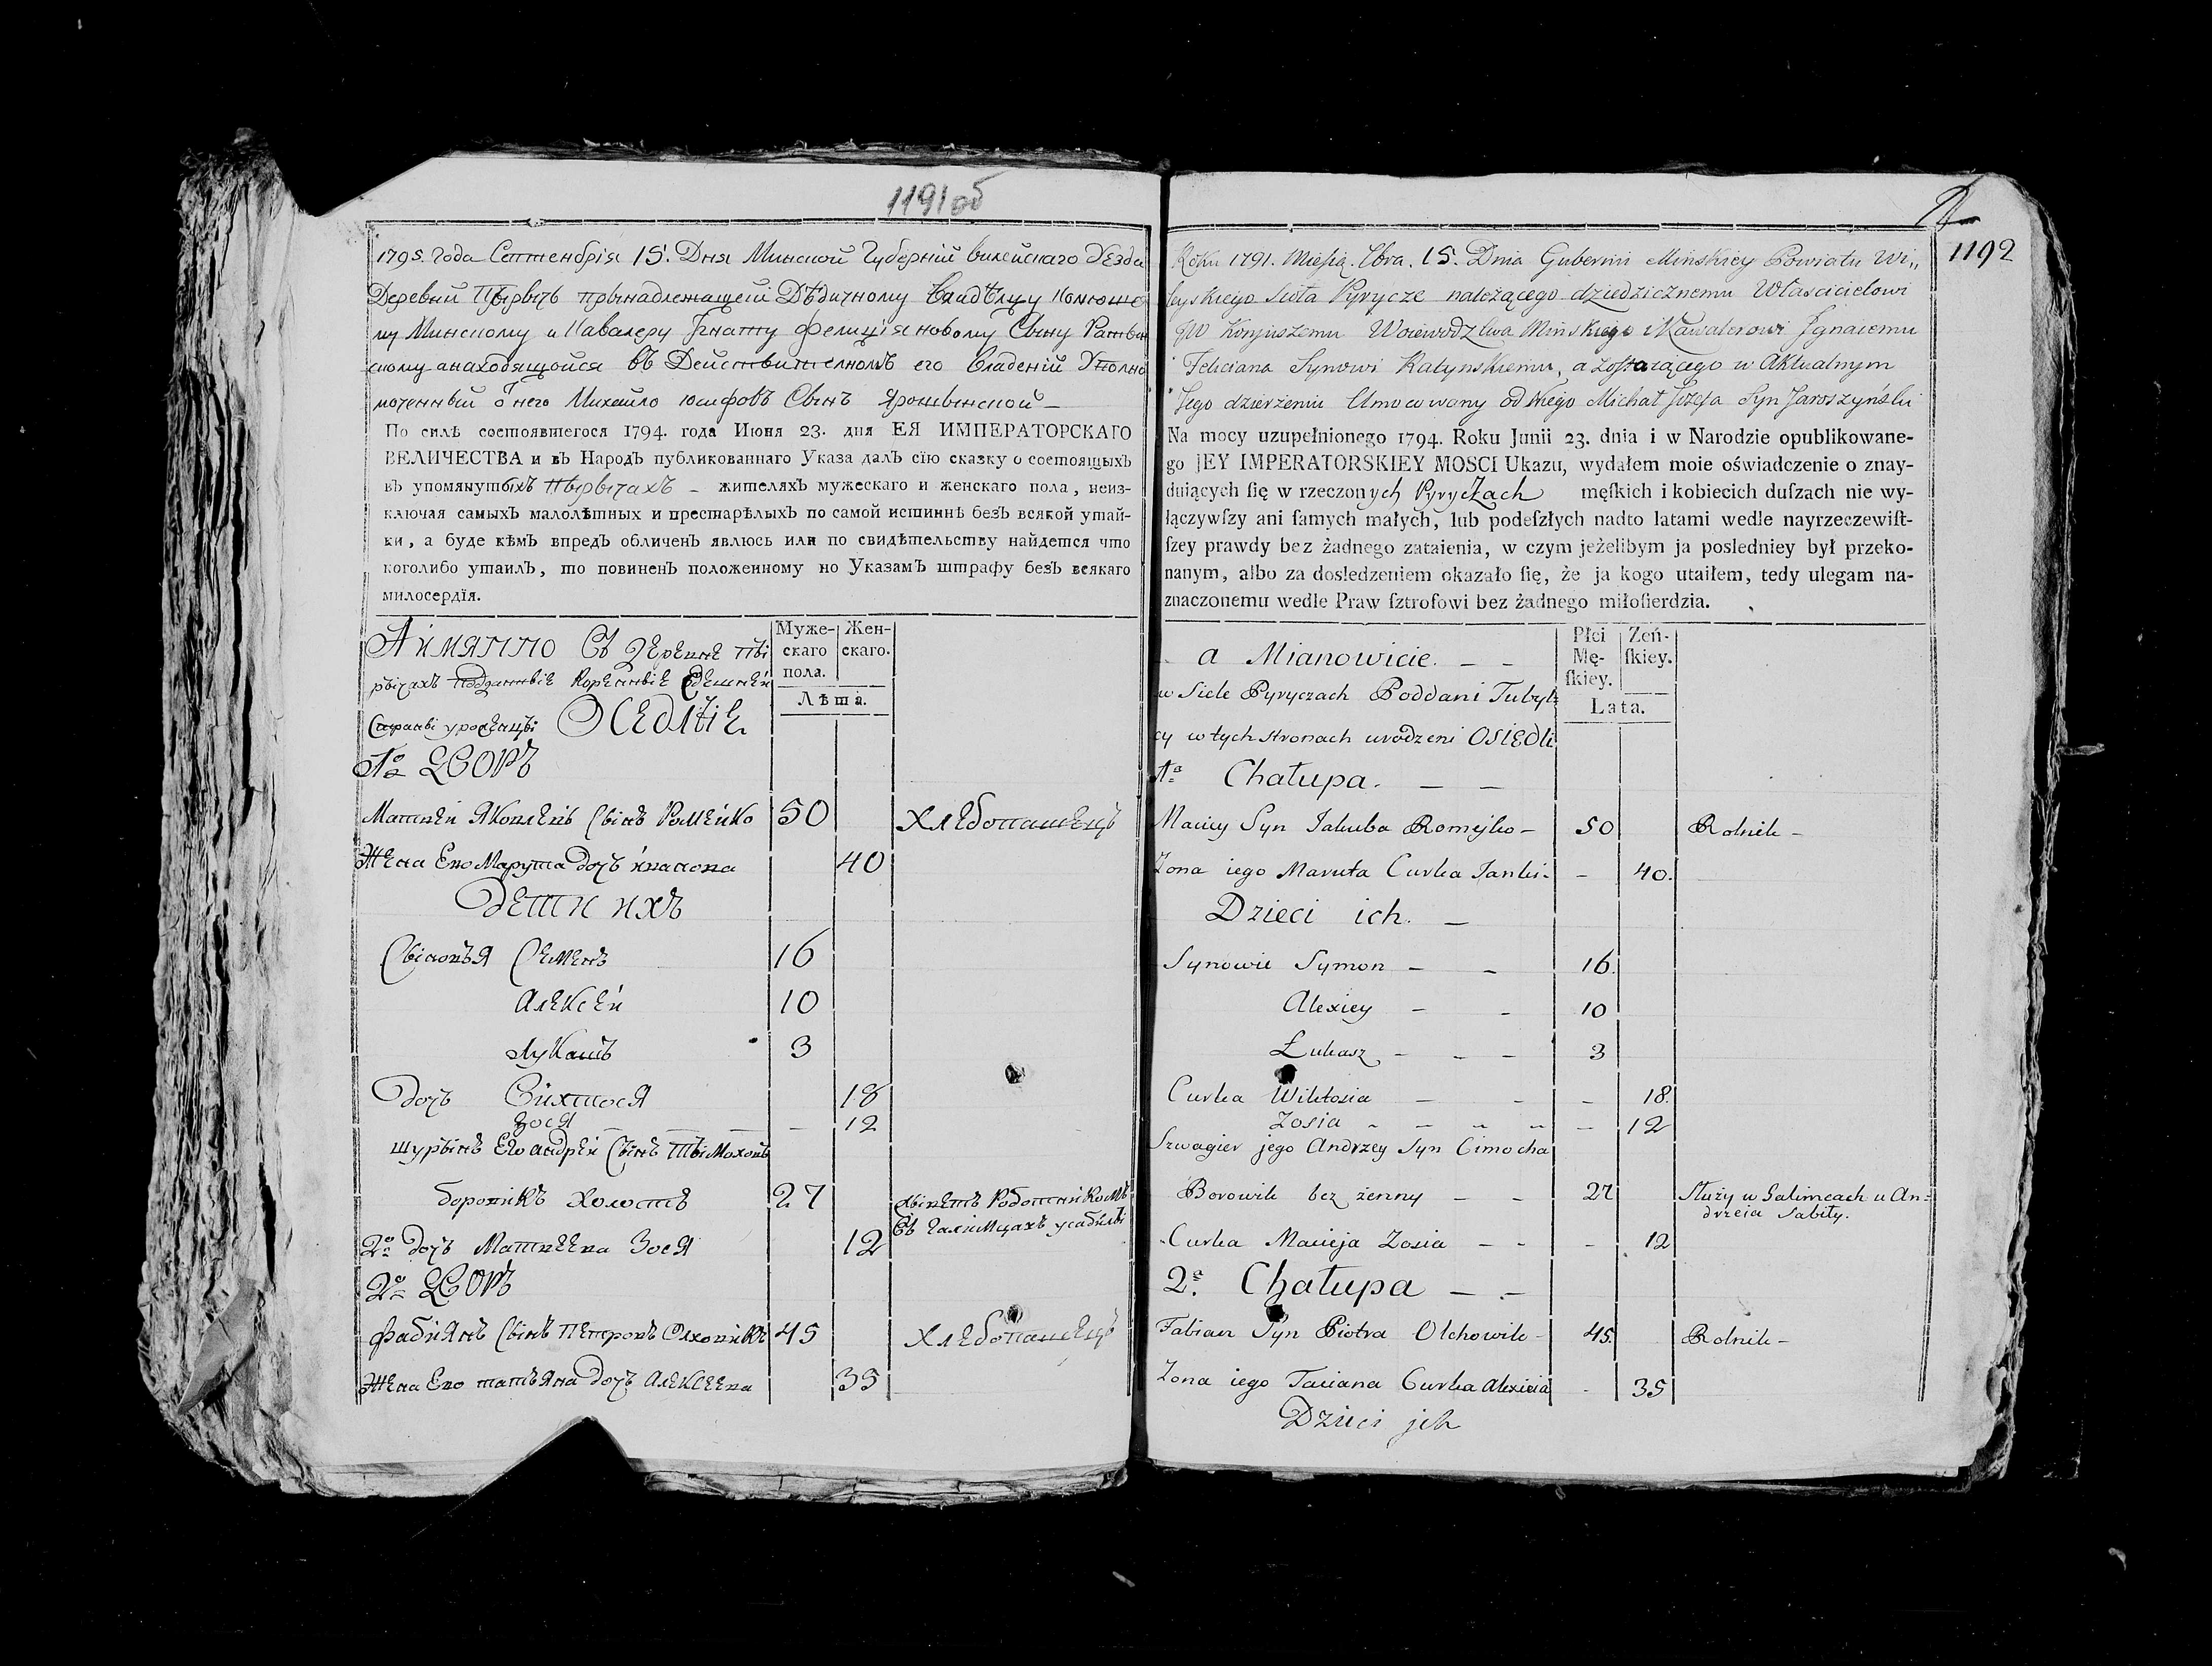 1191об
1795. года Септенбрія 15. Дня Минской Губерніи Вилейскаго Уезда
Деревни Пырычъ прынадлежащеи Дѣдичному Владѣлцу Конюше
му Минскому и Кавалеру Игнату Фелиціяновому Сыну Ратын
скому анаходящойся въ Действителномъ его владеніи Уполно
моченный о него Михайло юсифовъ Сынъ Ярошынской
По силѣ состоявшегося 1794. года Июня 23. дня ЕЯ ИМПЕРАТОРСКАГО
ВЕЛИЧЕСТВА и въ Народъ публикованнаго Указа далъ сїю сказку о состоящыхъ
въ упомянутыхъ Пырычахъ – жителяхъ мужескаго и женскаго пола, неиз-
ключая самыхъ малолѣтныхъ и престарѣлыхъ по самой истиннѣ безъ всякой утай-
ки, а буде кѣмъ впредъ обличенъ явлюсь или по свидѣтельству найдется что
коголибо утаилъ, то повиненъ положенному по Указамъ штрафу безъ всякаго
милосердїя.
Муже-скаго пола. Жен-скаго.
Лѣта.
Аимянно Въ деревне Пы
рычахъ подданные коренные здешней
Страны уроженцы Оседлые
1о Дворъ
Матвей Яковлевъ Сынъ Ромейко 50 Хлебопашецъ
Жена Ево Марута дочъ иванова 40
Дети ихъ
Сыновья Семенъ 16
Алексей 10
Лукашъ 3
Дочъ Вихтося 18
Зося 12
шурынъ Его андрей Сынъ Тымоховъ
боровикъ холостъ 27 жыветъ Работникомъ
въ Галимцахъ усабилы
2о дочъ Матвеева Зося 12
2о Дворъ
фабиянъ Сынъ петровъ Олховикъ 45 Хлебопашецъ
Жена Ево татьяна дочъ Алексеева 35
2
1192
Roku 1791. Miesią. 7bra. 15. Dnia Gubernii Mińskiey Powiatu Wi„
leyskiego Sioła Pyrycze należącego dziedzicznemu Właścicielowi
JW Konjuszemu Woiewodztwa Mińskiego i Kawalerowi Jgnacemu
Feliciana Synowi Ratynskiemu, a zostaiącego w Aktualnym
Jego dzierżeniu Umocowany od niego Michał Jozefa Syn Jaroszyński
Na mocy uzupełnionego 1794. Roku Junii 23. dnia i w Narodzie opublikowane-
go JEY IMPERATORSKIEY MOSCI Ukazu, wydałem moie oświadczenie o znay-
duiących ſię w rzeczonych Pyryczach męſkich i kobiecich duſzach nie wy-
łączywſzy ani ſamych małych, lub podeſzłych nadto latami wedle nayrzeczewiſt-
ſzey prawdy bez żadnego zataienia, w czym jeżelibym ja posledniey był przeko-
nanym, albo za dosledzeniem okazało ſię, że ja kogo utaiłem, tedy ulegam na-
znaczonemu wedle Praw ſztrofowi bez żadnego miłoſierdzia.
Płci Mę-ſkiey. Żeń-ſkiey.
Lata.
a Mianowicie. – –
w Siele Pyryczach Poddani Tubyl=
cy w tych stronach urodzeni OSIEDli
1a Chałupa. – –
Maciey Syn Jakuba Romeyko – 50 Rolnik –
Zona iego Maruta Curka Janki – 40.
Dzieci ich. –
Synowie Symon – – 16.
Alexiey – – 10
Łukasz – – – 3
Curka Wiktosia – – – 18.
Zosia – – – – – 12
Szwagier jego Andrzey Syn Cimocha
Borowik bez żenny – – 27 Służy w Galimcach u An=
drzeia Sabiły.
Curka Macieja Zosia – – – 12
2a. Chałupa – –
Fabian Syn Piotra Olchowik – 45. Rolnik –
Zona iego Taciana Curka Alexieia – 35
Dzieci jch